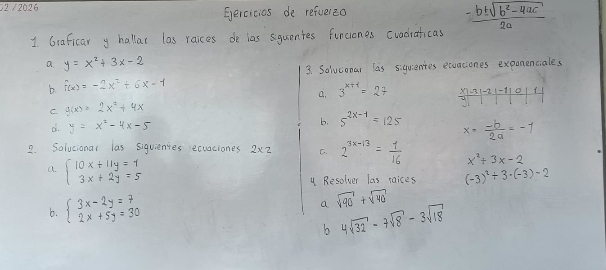 02/2026
Ejercicios de refuerzo
-b±√(b²-4ac)
2a
1. Graficar y hallar las raices de las siguentes funciones cuadráticas
a. y = x² + 3x - 2
b. f(x) = -2x² + 6x - 1
c. g(x) = 2x² + 4x
d. y = x² - 4x - 5
2. Solucionar las siguientes ecuaciones 2x2
a. { 10x + 11y = 1
3x + 2y = 5
b. { 3x - 2y = 7
2x + 5y = 30
3. Solucionar las siguientes ecuaciones exponenciales
a. 3^(x+1) = 27
b. 5^(2x-1) = 125
c. 2^(3x-13) = 1/16
4. Resolver las raices
a. √90 + √40
b. 4√32 - 7√8 - 3√18
x|-3|-2|-1|0|1|
y
x = -b/2a = -1
x² + 3x - 2
(-3)² + 3·(-3) - 2